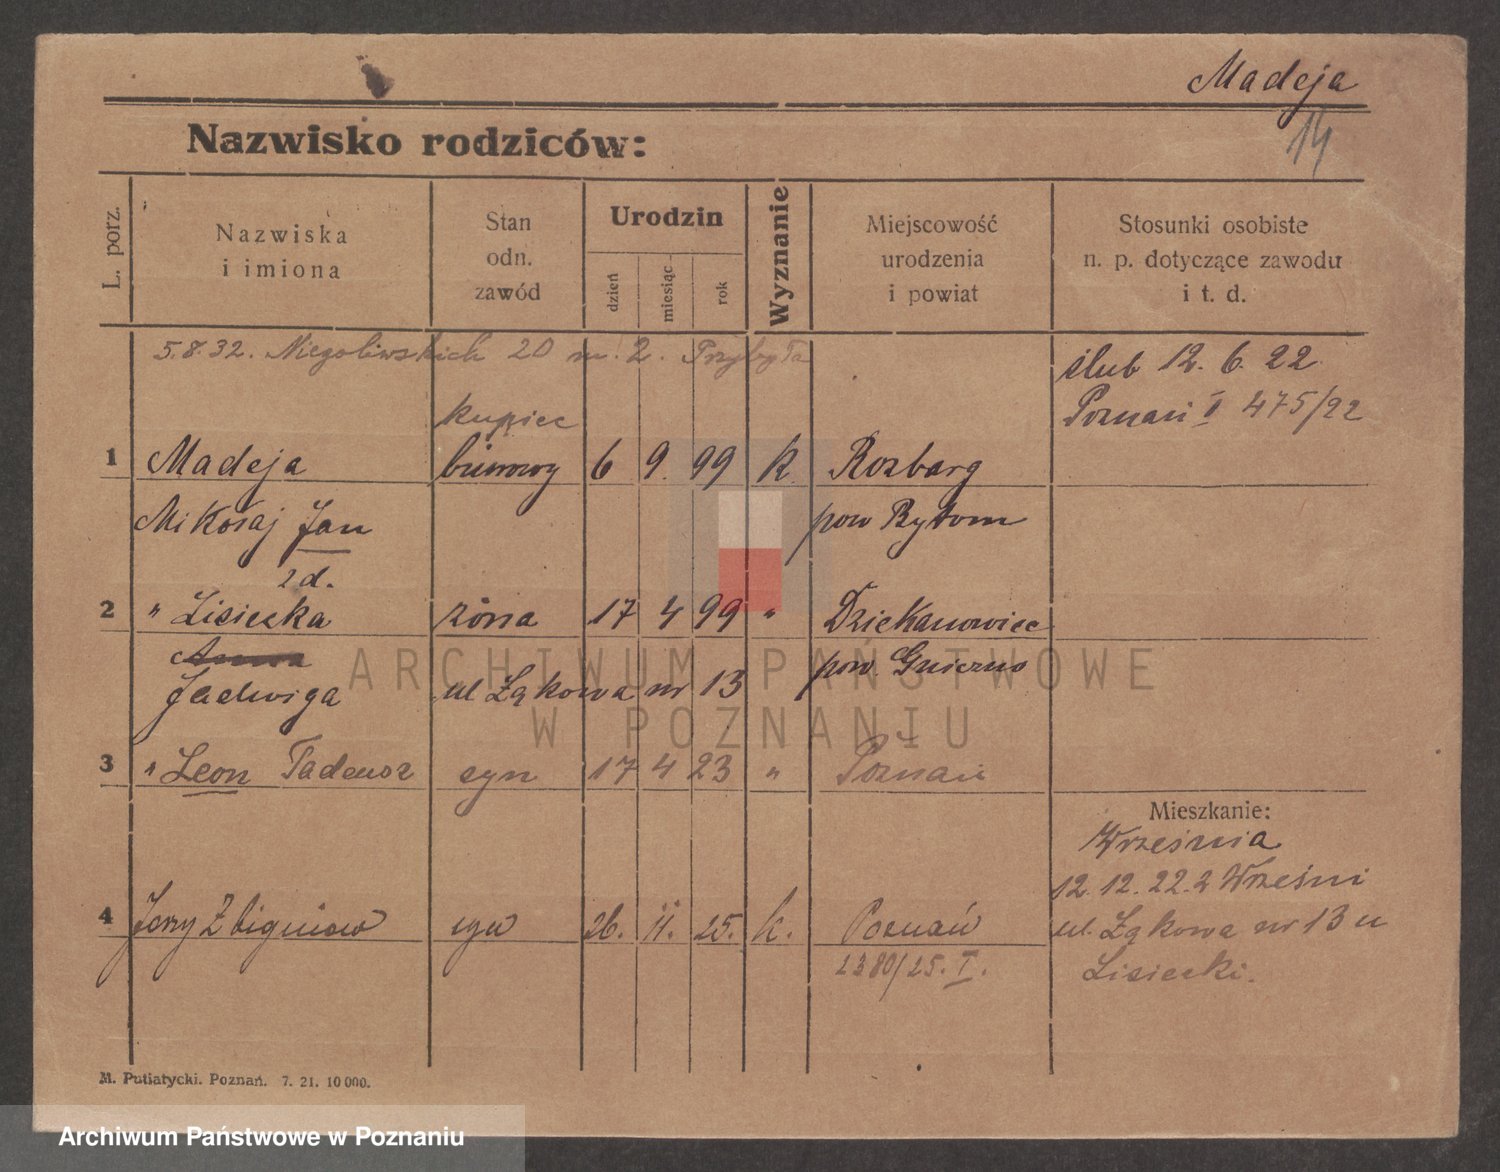 Madeja
14
Nazwisko rodziców:
L. porz.
Nazwiska
i imiona
Stan
odn.
zawód
Urodzin
dzień
miesiąc
rok
Wyznanie
Miejscowość
urodzenia
i powiat
Stosunki osobiste
n. p. dotyczące zawodu
i t. d.
5.8.32. Niegolewskich 20 m. 2. Przybyła
ślub 12. 6. 22
Poznań I 475/22
kupiec
1 Madeja biurowy 6 9. 99 k. Rozbarg
Mikołaj Jan pow Bytom
2 d.
2 " Lisiecka żona 17 4 99 " Dziekanowice
Anna pow. Gniezno
Jadwiga ul Łąkowa nr 13
3 " Leon Tadeusz syn 17 4 23 " Poznań
Mieszkanie:
Września
12. 12. 22. z Wrześni
4 Jerzy Zbigniew syn 26. 11. 25. k. Poznań
ul. Łąkowa nr 13 u
2380/25. I.
Lisiecki.
M. Putiatycki. Poznań. 7. 21. 10 000.
ARCHIWUM PAŃSTWOWE
W POZNANIU
Archiwum Państwowe w Poznaniu